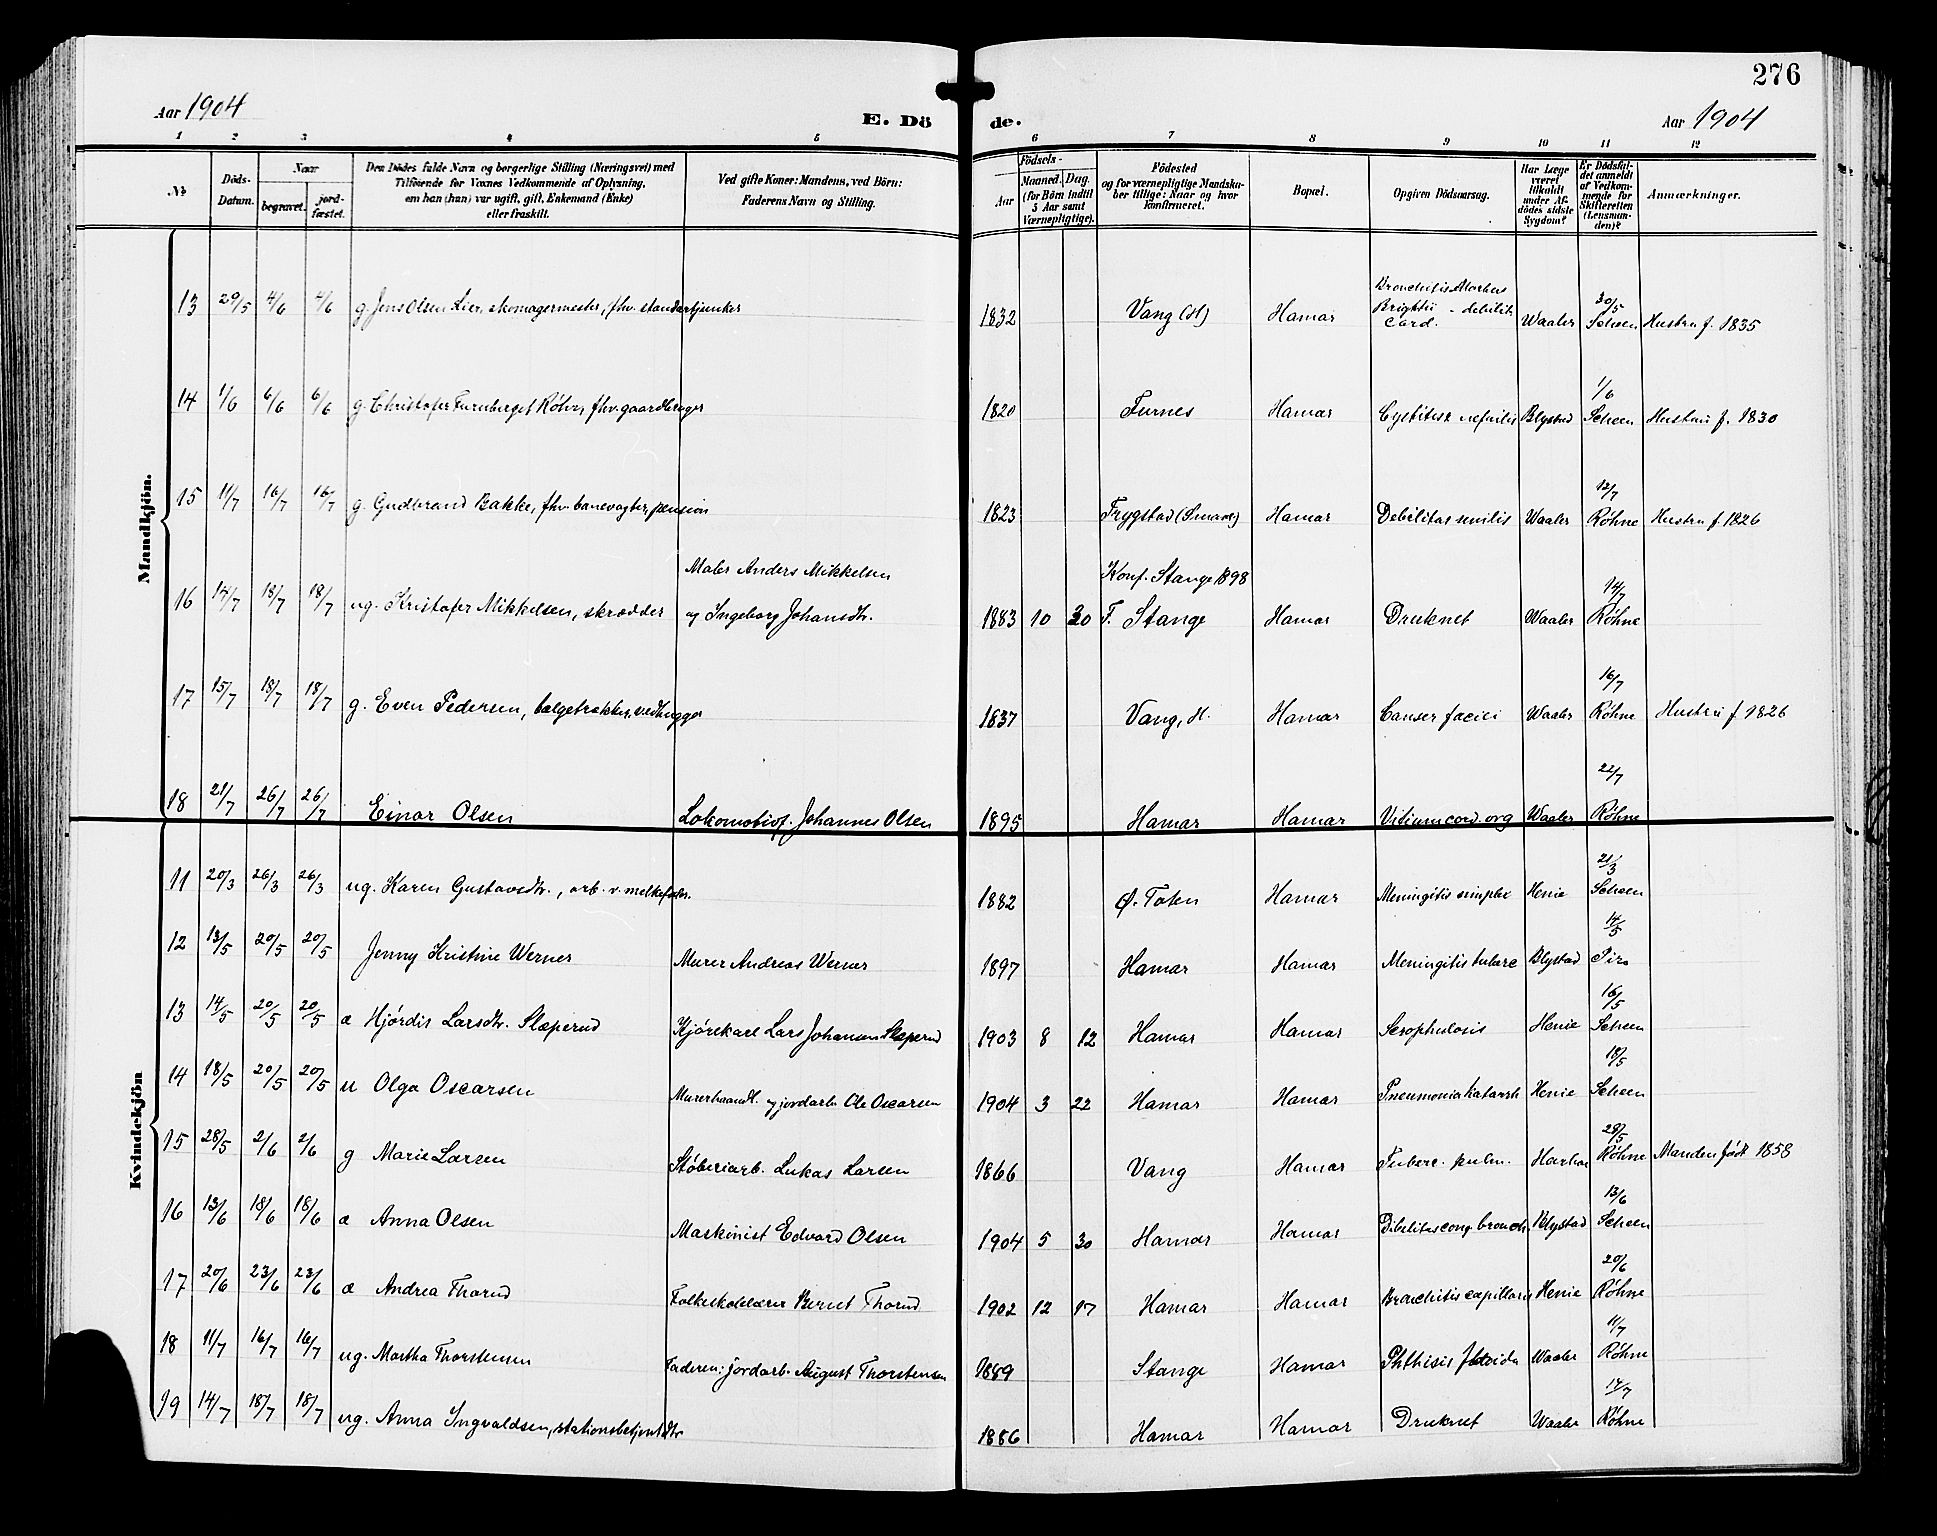 276
Aar 1904
E. Dö de.
Aar 1904
1 2 3 4 5 6 7 8 9 10 11 12
No
Döds-Datum.
Naar
begravet.
jordfæstet.
Den Dödes fulde Navn og borgerlige Stilling (Næringsvei) med
Tilföiende for Voxnes Vedkommende af Oplysning,
om han (hun) var ugift, gift, Enkemand (Enke)
eller fraskilt.
Ved gifte Koner: Mandens, ved Börn:
Faderens Navn og Stilling.
Födsels-
Aar
Maaned. Dag.
(for Börn indtil
5 Aar samt
Værnepligtige).
Födested
og for værnepligtige Mandska-
ber tillige: Naar og hvor
konfirmeret.
Bopæl.
Opgiven Dödsaarsag.
Har Læge
været
tilkaldt
under Af-
dödes sidste
Sygdom?
Er Dödsfal-
det anmeldt
af Vedkom-
mende for
Skifteretten
(Lensman-
den)?
Anmærkninger.
Mandkjön.
13 29/5 4/6 4/6 g. Jens Olsen Lier, skomagermester, fhv. standertjunker 1832 Vang (H) Hamar Bronchitis Morbus Brightii - debilit. Card. Waaler 30/5 Scheen Hustru f. 1835
14 1/6 6/6 6/6 g. Christofer Furuberget Röhne, fhv. gaardbruger 1820 Furnes Hamar Blystad 1/6 Scheen Hustru f. 1830
15 11/7 16/7 16/7 g. Gudbrand Bakke, fhv. banevogter, pension 1823 Trygstad Hamar Debilitas senilis Waaler 12/7 Röhne Hustru f. 1826
16 14/7 18/7 18/7 ug. Kristofer Mikkelsen, skrædder Maler Anders Mikkelsen og Ingeborg Johansdtr. 1883 10 30 Konf. Stange 1898 F. Stange Hamar Druknet Waaler 14/7 Röhne
17 15/7 18/7 18/7 g. Even Pedersen, bælgetrækker, vedhugger 1837 Vang, H. Hamar Canser faciei Waaler 16/7 Röhne Hustru f. 1826
18 21/7 26/7 26/7 Einar Olsen Lokomotivf. Johannes Olsen 1895 Hamar Hamar Vitium cord. org Waaler 22/7 Röhne
Kvindekjön
11 20/3 26/3 26/3 ug. Karen Gustavsdtr., arb. v. melkefabr. 1882 Ø. Toten Hamar Meningitis simplex Henie 21/3 Scheen
12 13/5 20/5 20/5 Jenny Kristine Werner Murer Andreas Werner 1897 Hamar Hamar Meningitis tuberc Blystad 14/5
13 14/5 20/5 20/5 æ Hjördis Larsdtr. Slæperud Kjörekarl Lars Johansen Slæperud 1903 8 12 Hamar Hamar Scrophulosis Henie 16/5 Scheen
14 18/5 20/5 20/5 u Olga Oscarsen Murerhaandl. og jordarb. Ole Oscarsen 1904 3 22 Hamar Hamar Pneumonia katarrh Henie 18/5 Scheen
15 28/5 2/6 2/6 g Marie Larsen Stöberiarb. Lukas Larsen 1866 Vang Hamar Tuberc. pulm. 28/5 Röhne Manden född 1858
16 13/6 18/6 18/6 æ Anna Olsen Maskinist Edvard Olsen 1904 5 30 Hamar Hamar Debilitas cong. bronch. Blystad 13/6 Scheen
17 20/6 23/6 23/6 æ Andrea Thorud Folkeskolelærer Bernt Thorud 1902 12 17 Hamar Hamar Bronchitis capillaris Henie 20/6 Röhne
18 11/7 16/7 16/7 ug. Martha Thorstensen Faderen: jordarb. August Thorstensen 1889 Stange Hamar Phthisis florida Waaler 11/7 Röhne
19 14/7 18/7 18/7 ug. Anna Ingvaldsen, stationsbetjentdtr 1886 Hamar Hamar Druknet Waaler 14/7 Röhne